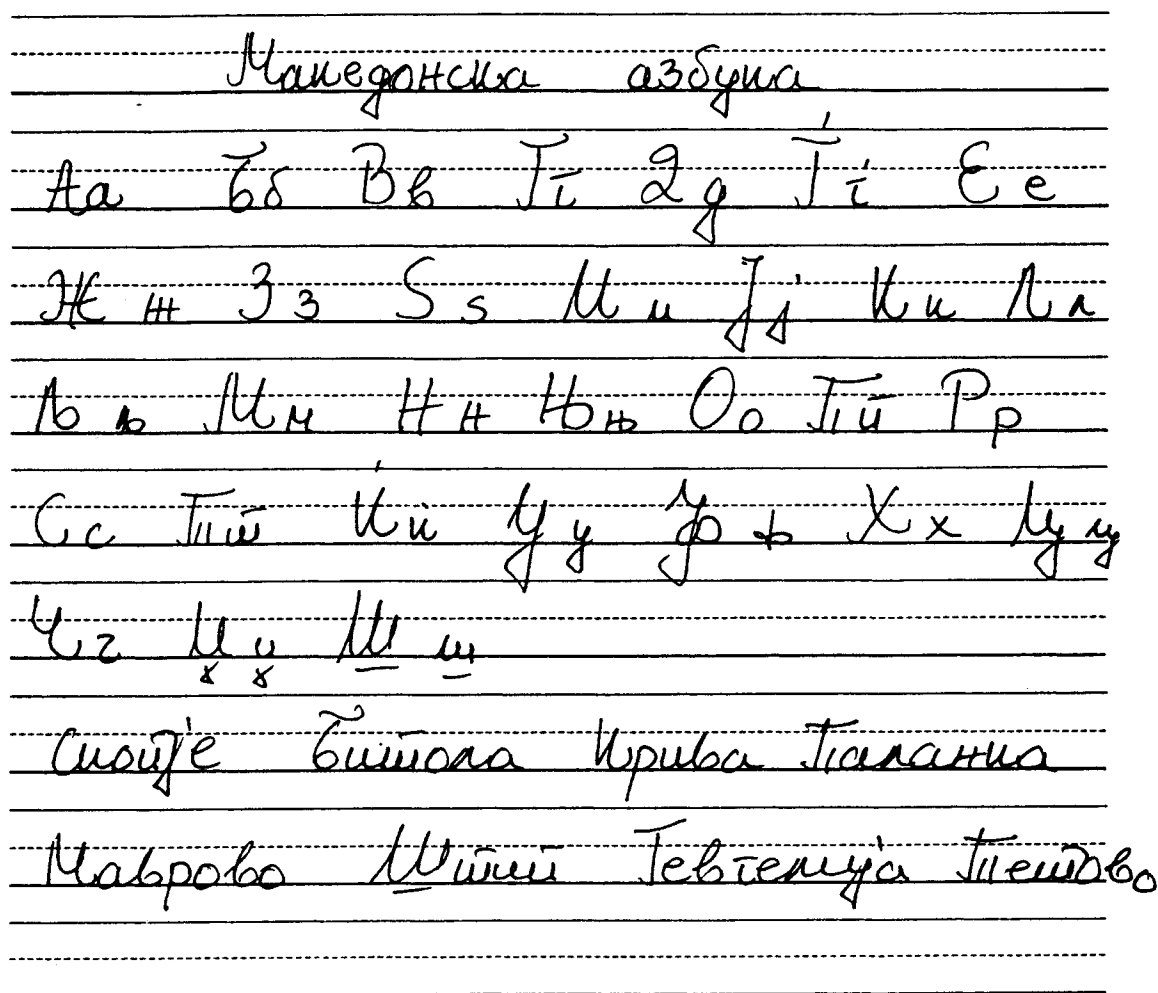 Македонска азбука
Аа Бб Вв Гг Дд Ѓѓ Ее
Жж Зз Ѕѕ Ии Јј Кк Лл
Љљ Мм Нн Њњ Оо Пп Рр
Сс Тт Ќќ Уу Фф Хх Цц
Чч Џџ Шш
Скопје Битола Крива Паланка
Маврово Штип Гевгелија Тетово